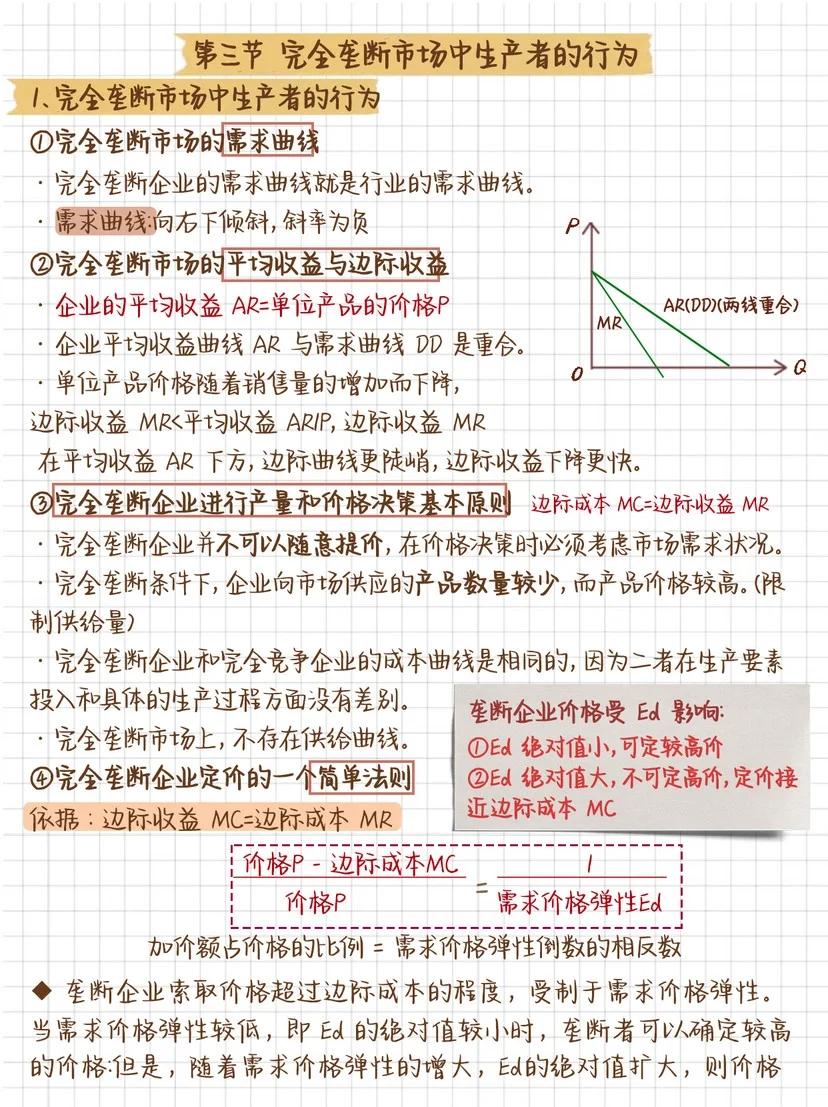 第三节 完全垄断市场中生产者的行为
1、完全垄断市场中生产者的行为
①完全垄断市场的需求曲线
·完全垄断企业的需求曲线就是行业的需求曲线。
·需求曲线:向右下倾斜,斜率为负
②完全垄断市场的平均收益与边际收益
·企业的平均收益 AR=单位产品的价格P
·企业平均收益曲线 AR 与需求曲线 DD 是重合。
·单位产品价格随着销售量的增加而下降,
边际收益 MR<平均收益 AR|P, 边际收益 MR
在平均收益 AR 下方, 边际曲线更陡峭, 边际收益下降更快。
P
AR(DD)(两线重合)
MR
O
Q
③完全垄断企业进行产量和价格决策基本原则 边际成本 MC=边际收益 MR
·完全垄断企业并不可以随意提价, 在价格决策时必须考虑市场需求状况。
·完全垄断条件下, 企业向市场供应的产品数量较少, 而产品价格较高。(限
制供给量)
·完全垄断企业和完全竞争企业的成本曲线是相同的, 因为二者在生产要素
投入和具体的生产过程方面没有差别。
·完全垄断市场上, 不存在供给曲线。
垄断企业价格受 Ed 影响:
①Ed 绝对值小, 可定较高价
②Ed 绝对值大, 不可定高价, 定价接
近边际成本 MC
④完全垄断企业定价的一个简单法则
依据:边际收益 MC=边际成本 MR
价格P - 边际成本MC
价格P
=
1
需求价格弹性Ed
加价额占价格的比例 = 需求价格弹性倒数的相反数
◆ 垄断企业索取价格超过边际成本的程度, 受制于需求价格弹性。
当需求价格弹性较低, 即 Ed 的绝对值较小时, 垄断者可以确定较高
的价格:但是, 随着需求价格弹性的增大, Ed的绝对值扩大, 则价格